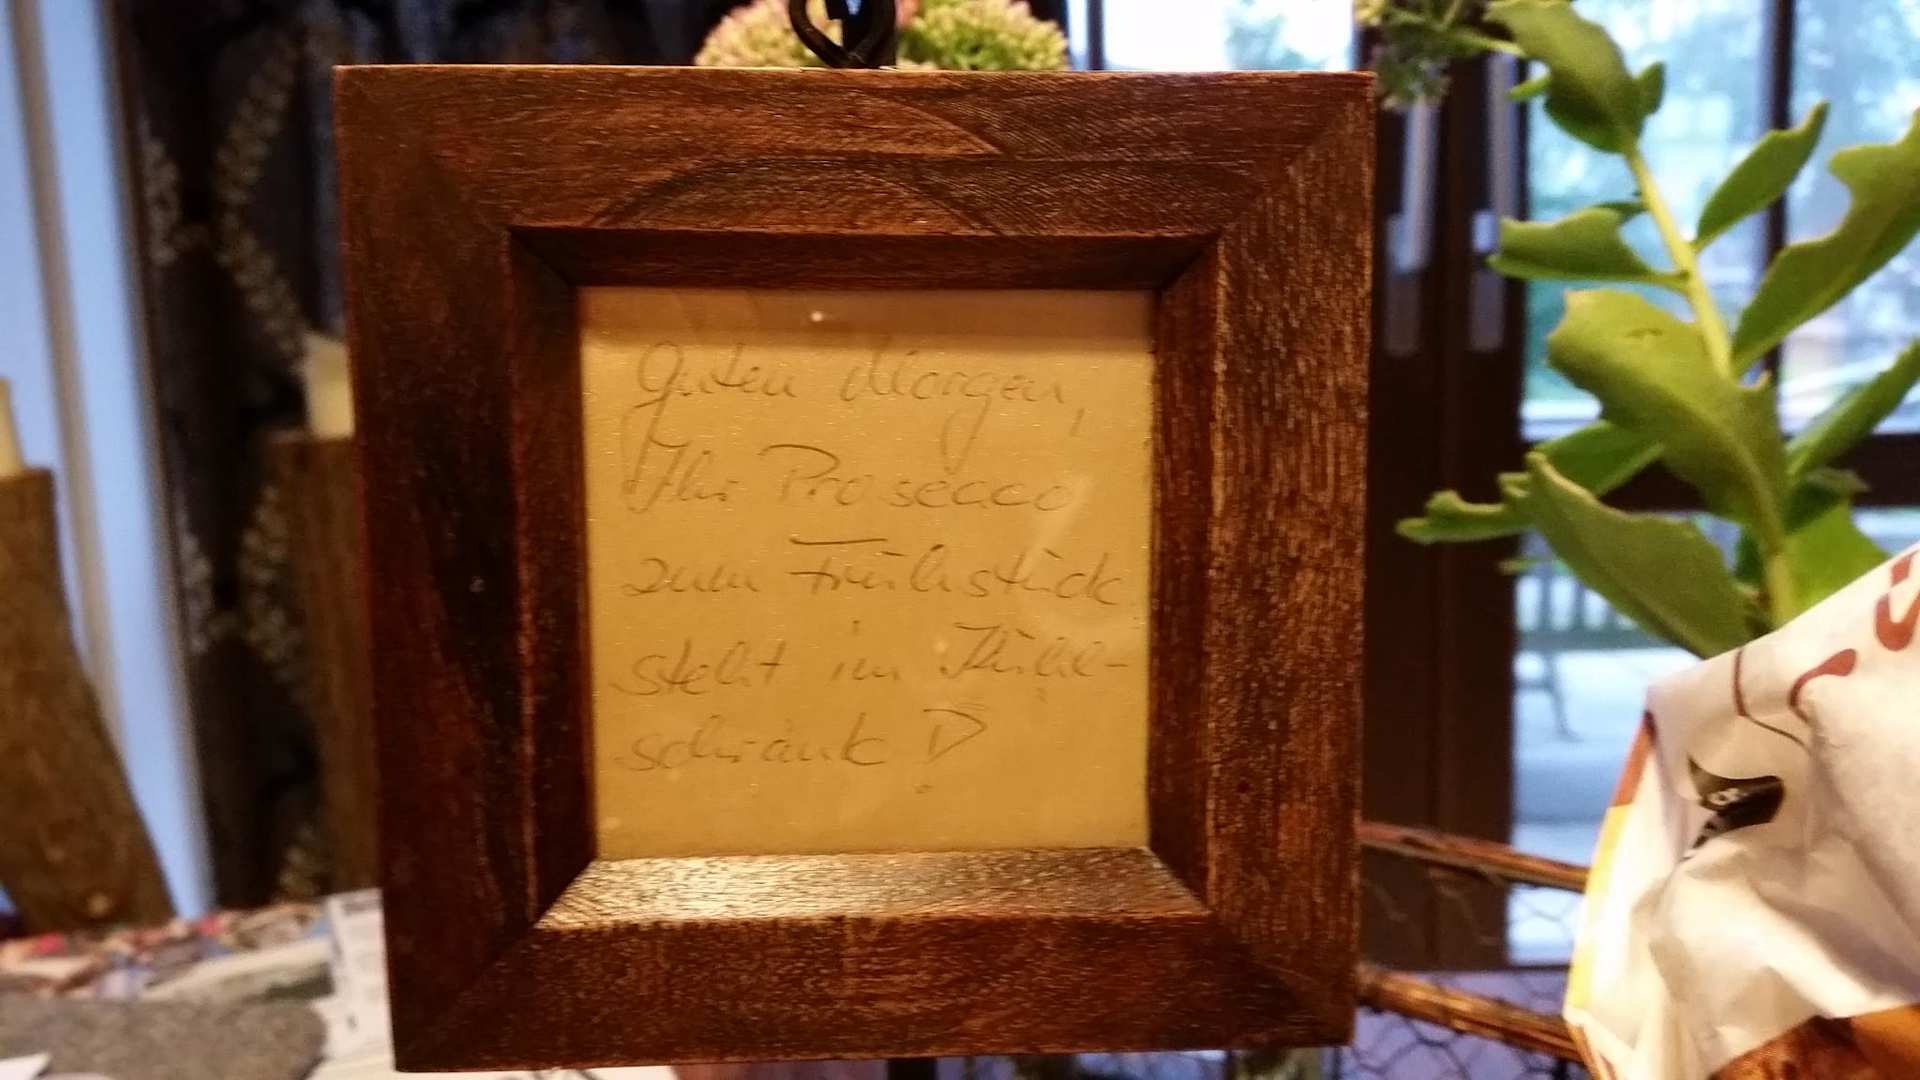 Guten Morgen,
Ihr Prosecco
zum Frühstück
steht im Kühl-
schrank!